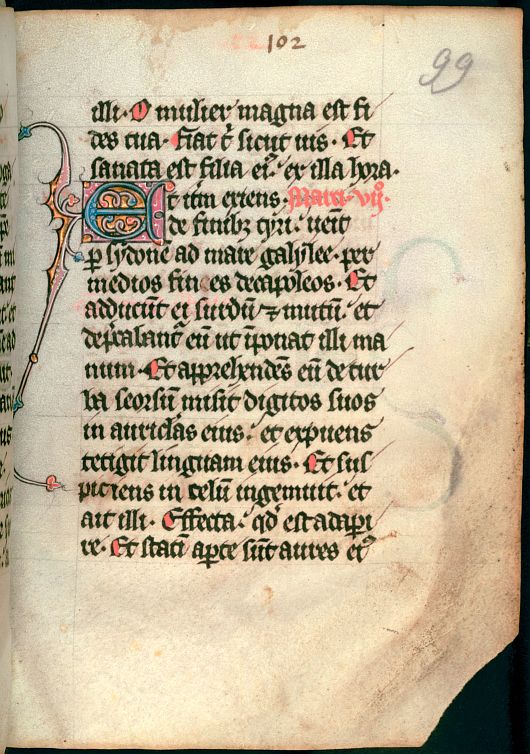 102
99
illi. O mulier magna est fi
des tua. Fiat t̄ sicut uis. Et
sanata est filia eiꝰ ex illa hora.
Et itm̄ exiens. Marci. vij.
de finibꝫ tyri. uenit
p̄ sydonē ad mare galylee. per
medios fines decapoleos. Et
adducunt ei surdū ⁊ mutū. et
dep̄cabant᷑ eū ut īponat illi ma
num. Et apprehendēs eū de tur
ba seorsū misit digitos suos
in auriclas eius. et expuens
tetigit linguam eius. Et sus
piciens in celū ingemuit. et
ait illi. Effeta. qd̄ est adapi
re. Et statī apte sūt aures eiꝰ